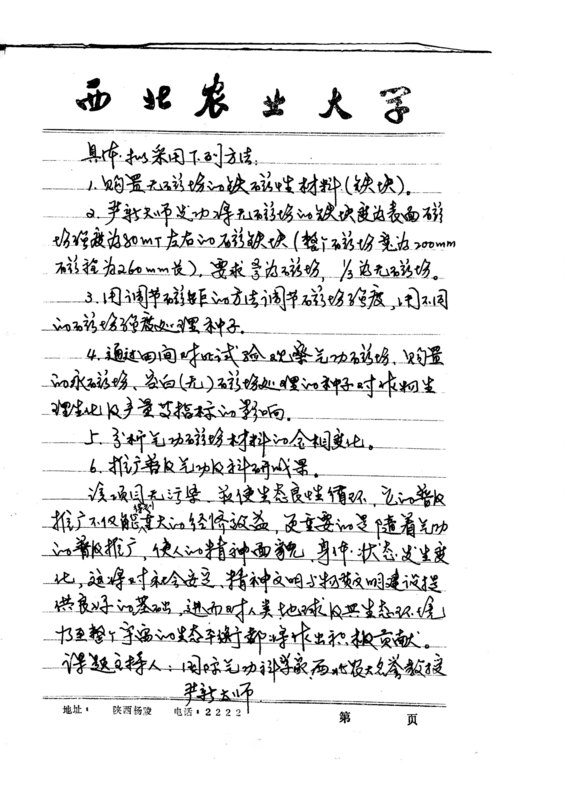 西北农业大学
具体拟采用下列方法:
1. 购置无磁场的铁磁性材料(铁块)。
2. 严新大师发功将无磁场的铁块变为表面磁
场强度为80mT左右的磁铁块(整个磁场宽为200mm
磁程为260mm长),要求 为磁场, 为无磁场。
3. 用调节磁距的方法调节磁场强度,用不同
的磁场强度处理种子。
4. 通过田间对比试验观察气功磁场、购置
的永磁场、空白(无)磁场处理的种子对作物生
理生化及产量等指标的影响。
5. 分析气功磁场材料的金相变化。
6. 推广普及气功及科研成果。
该项目无污染,并使生态良性循环,它的普及
推广不仅能 重大的经济效益,更重要的是随着气功
的普及推广,使人的精神面貌、身体状态发生变
化,这将对社会安定、精神文明与物质文明建设提
供良好的基础,进而对人类地球及其生态环境
乃至整个宇宙的生态平衡都将作出积极贡献。
课题主持人:国际气功科学家西北农大名誉教授
严新大师
地址: 陕西杨陵 电话:2222 第 页